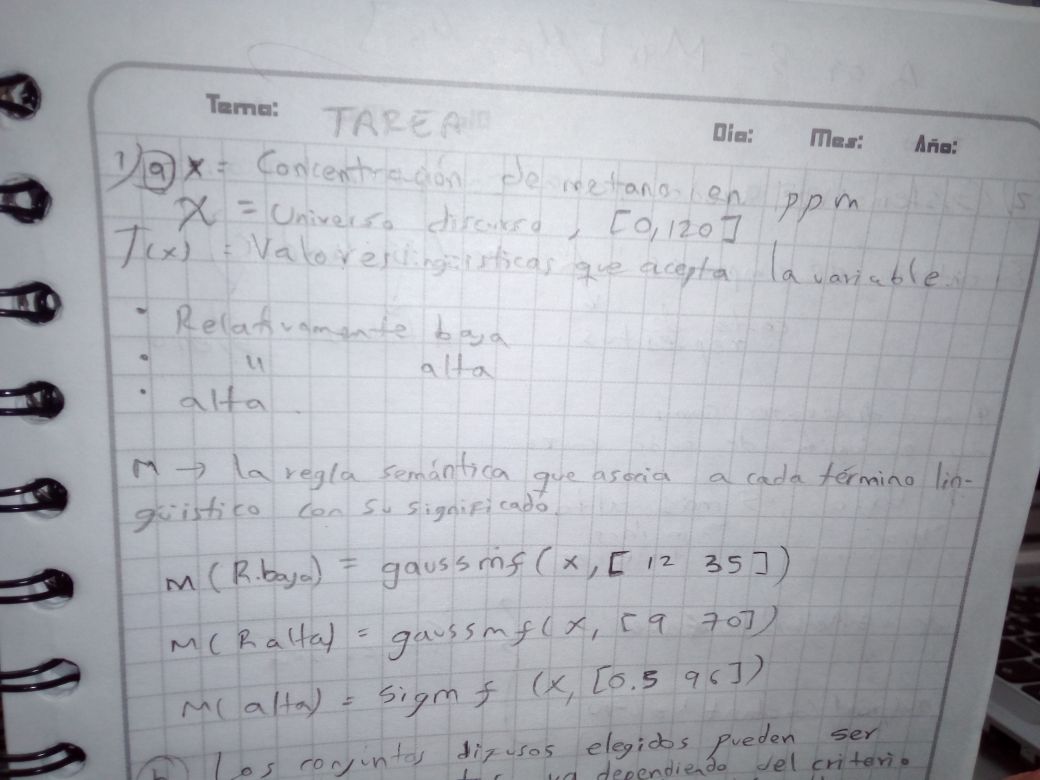 Tema: TAREA
Dia: Mes: Año:
1) a x = Concentración de metano en ppm
X = Universo discurso, [0,120]
T(x) = Valores lingüísticas que acepta la variable.
• Relativamente baja
• " alta
• alta.
M → la regla semántica que asocia a cada término lin-
güístico con su significado.
M(R.baja) = gaussmf(x,[12 35])
M(R alta) = gaussmf(x,[9 70])
M(alta) = sigmf (x,[0.5 96])
b Los conjuntos difusos elegidos pueden ser
dependiendo del criterio